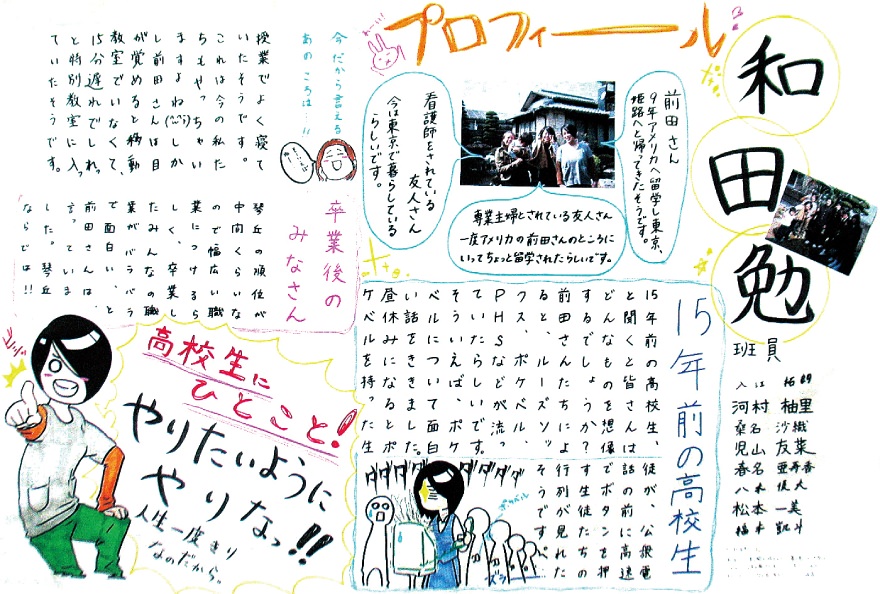 プロフィール
わーい!
和田勉
前田さん
9年アメリカへ留学し東京、
姫路へと帰ってきたそうです。
専業主婦とされている友人さん
一度アメリカの前田さんのところに
いってちょっと留学されたらしいです。
看護師をされている
友人さん
今は東京で暮らしている
らしいです。
今だから言える
あのころは…!!
授業でよく寝て
いたそうです。
これは今の私た
ちもやっちゃい
ますよね(^^;)しか
し前田さんは目
が覚めると移動
教室でいなくて、
15分遅れでしれっ
と特別教室に入っ
ていたそうです。
卒業後の
みなさん
琴丘の順位が
中間くらいな
ので幅広い職
業につけるら
しく、卒業し
たみんなの職
業がバラバラ
で面白い、と
前田さんは、
言っていま
した。琴丘
ならでは!!
15年前の高校生
15年前の高校生、
と聞くと皆さんは
どんなものを想像
するでしょうか?
前田さんたちによ
ると、ルーズソッ
クス、ポケベル、
PHSなどが流行っ
ていたらしいです。
そういえば、ポケ
ベルについて面白
い話をききました。
昼休みになるとポ
ケベルを持った生
徒が、公衆電
話の前に高速
でボタンを押
す生徒たちの
行列が見れた
そうですよ。
ダダダダダダダダ
ポケベル
ズラッ
高校生に
ひとこと!
やりたいように
やりなっ!!
人生一度きり
なのだから。
班員
河村 柚里
桑名 沙織
児山 友葉
春名 亜寿香
松本 一美
福本 凱斗